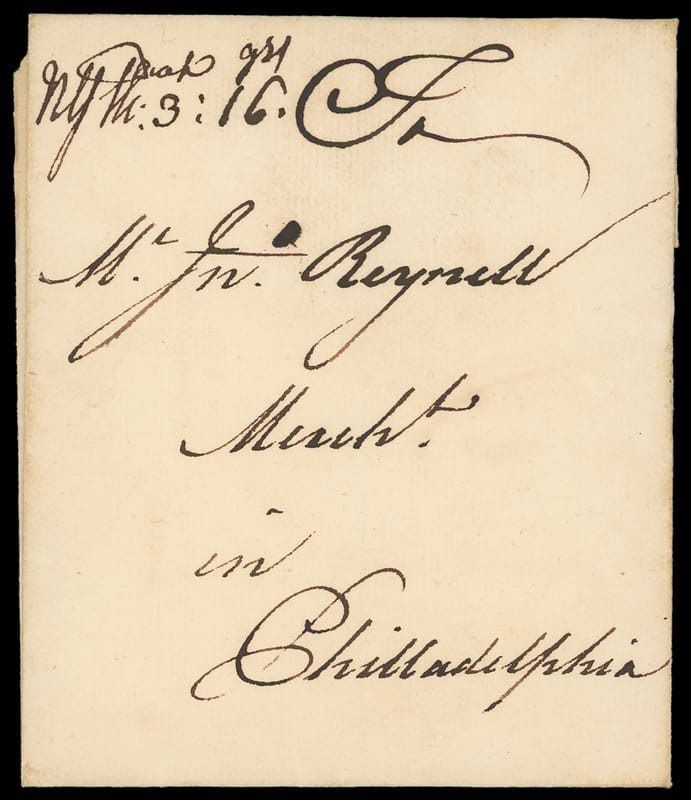 NY 3: 16. To
Mr. Jno. Reynell
Mercht.
in
Philladelphia